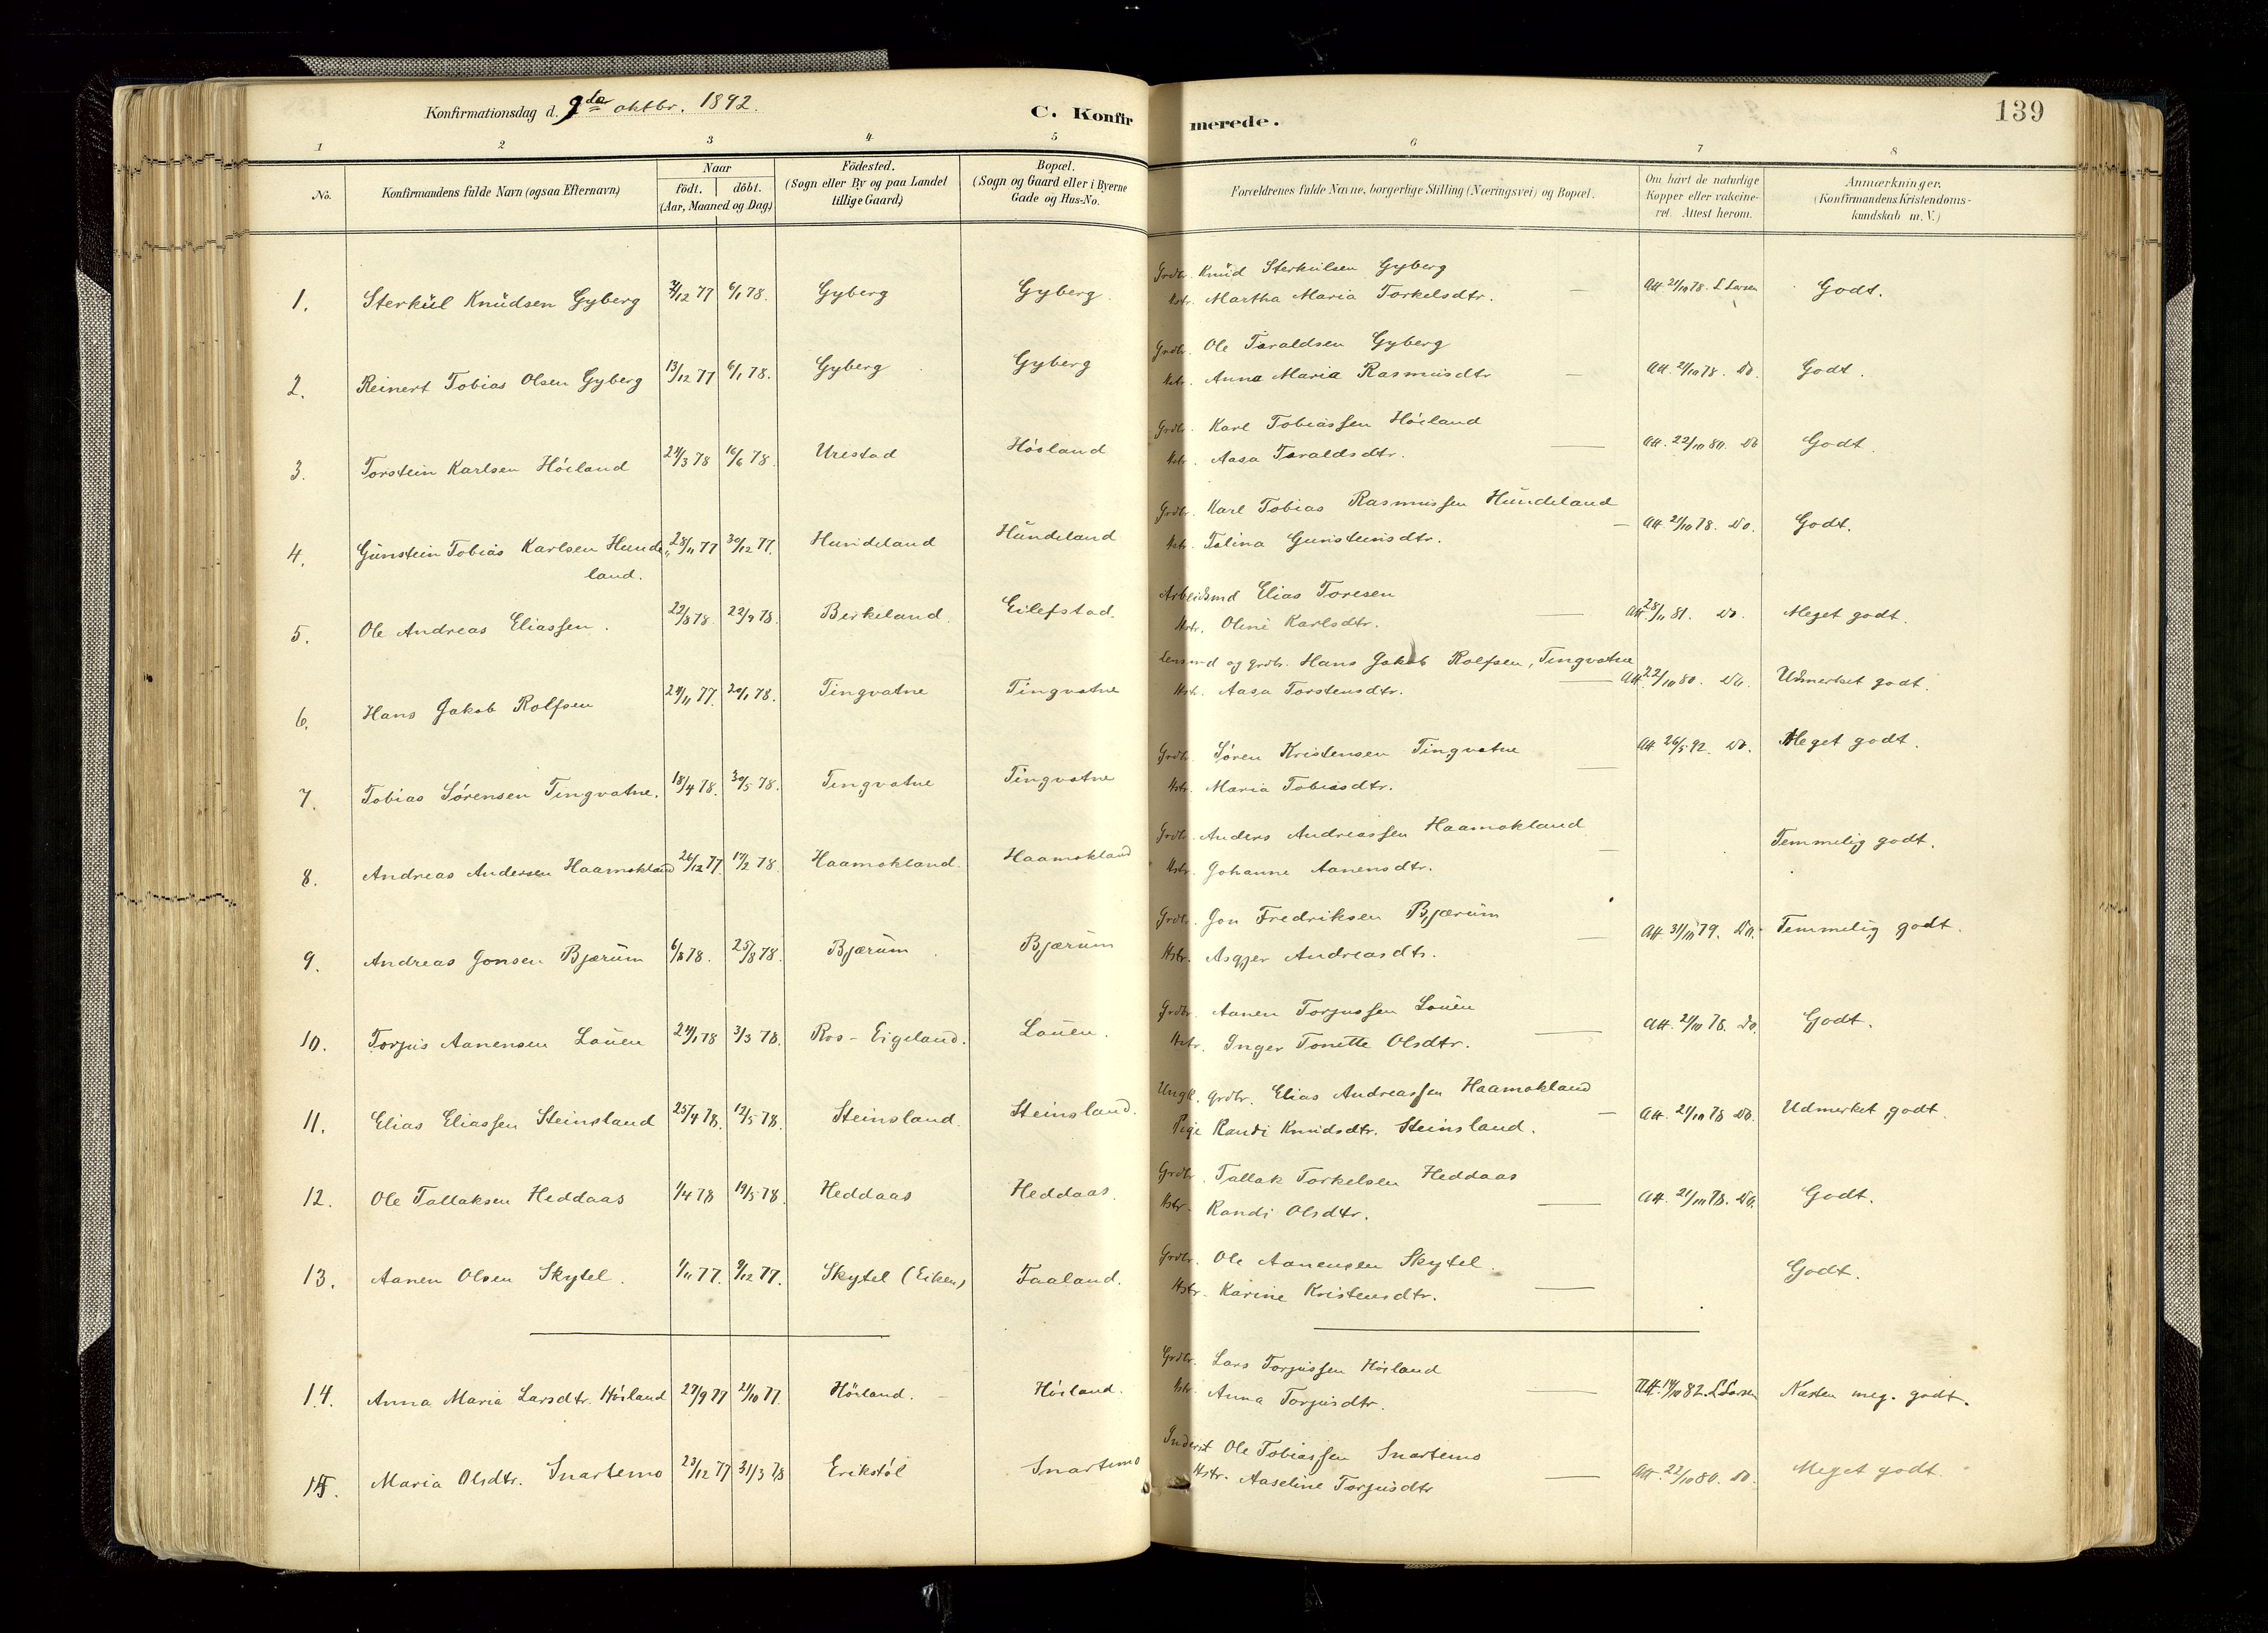 Konfirmationsdag d. 9de oktbr. 1892.
C. Konfirmerede.
139
1 2 3 4 5 6 7 8
No. Konfirmandens fulde Navn (ogsaa Efternavn) Naar födt. döbt. (Aar, Maaned og Dag) Födested. (Sogn eller By og paa Landet tillige Gaard) Bopæl. (Sogn og Gaard eller i Byerne Gade og Hus-No. Forældrenes fulde Navne, borgerlige Stilling (Næringsvei) og Bopæl. Om havt de naturlige Kopper eller vakcineret. Attest herom. Anmærkninger. (Konfirmandens Kristendomskundskab m. V.)
Grdbr. Knud Sterkulsen Gyberg
1. Sterkül Knüdsen Gyberg /12 77 6/1 78. Gyberg Gyberg. Hstr. Martha Maria Torkelsdtr. — Att. 21/10 78. L Larsen Godt.
Grdbr. Ole Taraldsen Gyberg
2. Reinert Tobias Olsen Gyberg 13/12 77 6/1 78. Gyberg Gyberg Hstr. Anna Maria Rasmusdtr — Att. 21/10 78. Do. Godt.
Grdbr. Karl Tobiassen Höiland
3. Torstein Karlsen Höiland 24/3 78 16/6 78. Urestad Höiland Hstr. Aasa Taraldsdtr. — Att. 22/10 80. Do Godt.
Grdbr. Karl Tobias Rasmussen Hündeland
4. Günstein Tobias Karlsen Hunde 28/11 77 30/12 77. Hundeland Hündeland Hstr. Talina Gunsteinsdtr. — Att. 21/10 78. Do. Godt.
land.
Arbeidsmd Elias Toresen
5. Ole Andreas Eliassen. 22/8 78. 22/9 78. Birkeland. Eilefstad. Hstr. Oline Karlsdtr. — Att. 28/11 81. Do. Meget godt.
Lensmd og grdbr. Hans Jakob Rolfsen, Tingvatne
6. Hans Jakob Rolfsen 24/11 77. 20/1 78. Tingvatne Tingvatne Hstr. Aasa Torstensdtr. — Att. 22/10 80. Do. Udmerket godt.
Grdbr. Sören Kristensen Tingvatne
7. Tobias Sörensen Tingvatne. 18/4 78. 30/5 78. Tingvatne Tingvatne Hstr. Maria Tobiasdtr. — Att. 26/5 92. Do. Meget godt.
Grdbr. Anders Andreassen Haamokland
8. Andreas Andersen Haamokland 26/12 77. 17/2 78. Haamokland. Haamokland Hstr. Johanne Aanensdtr. — Temmelig godt.
Grdbr. Jon Fredriksen Bjærüm
9. Andreas Jonsen Bjærüm 6/8 78. 25/8 78. Bjærüm Bjærüm Hstr. Asgjer Andreasdtr. — Att. 31/10 79. Do. Temmelig godt.
Grdbr. Aanen Torjussen Loüen
10. Torjus Aanensen Loüen 24/1 78 3/3 78. Ros-Eigeland. Loüen. Hstr. Inger Tonette Olsdtr. — Att. 21/10 78. Do. Godt.
Ungk. grdbr. Elias Andreassen Haamokland
11. Elias Eliassen Steinsland 25/4 78. 12/5 78. Steinsland. Steinsland. Pige Randi Knudsdtr. Steinsland. — Att. 21/10 78 Do. Udmerket godt
Grdbr. Tallak Torkelsen Heddaas
12. Ole Tallaksen Heddaas 1/4 78 19/5 78. Heddaas Heddaas. Hstr. Randi Olsdtr. — Att. 21/10 78. Do. Godt.
Grdbr. Ole Aanensen Skytel.
13. Aanen Olsen Skytel. 1/11 77. 9/12 77. Skytel (Eiken) Faaland. Hstr. Karine Kristensdtr. — Godt.
Grdbr. Lars Torjussen Höiland
14. Anna Maria Larsdtr. Höiland 27/9 77 21/10 77. Höiland. Höiland. Hstr. Anna Torjusdtr. — Att. 14/10 82. L Larsen Næsten meg. godt.
Inderst Ole Tobiassen Snartemo
15. Maria Olsdtr. Snartemo 23/12 77 31/3 78 Erikstöl Snartemo Hstr. Aaseline Torjusdtr — Att. 22/10 80. Do. Meget godt.